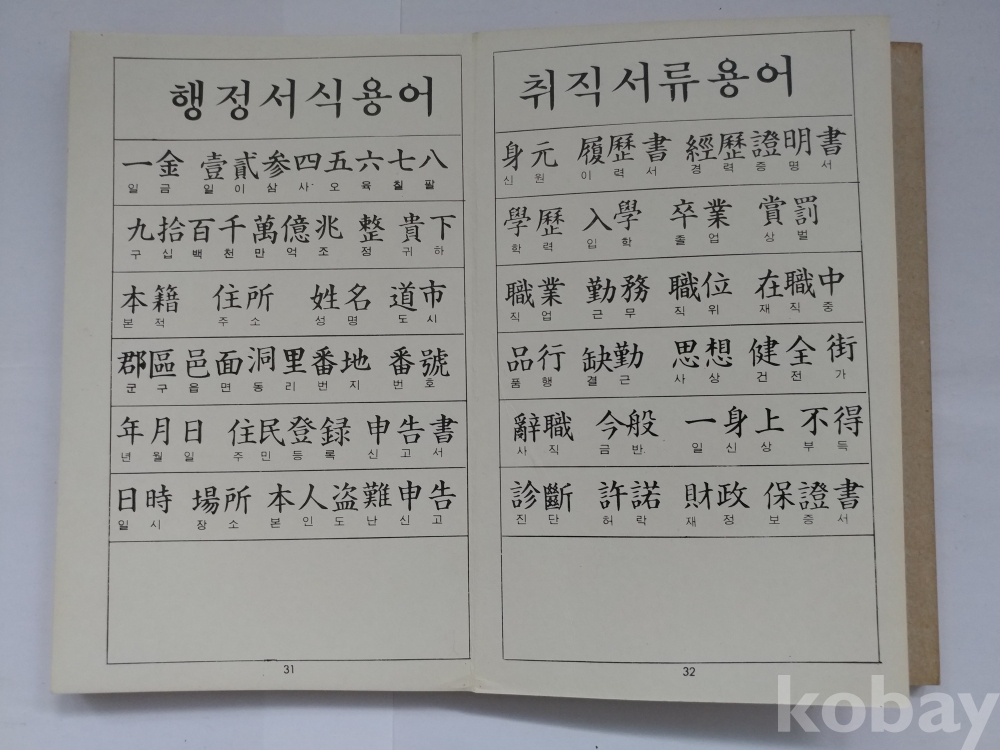 행정서식용어
一金 壹貳参四五六七八
일금 일이삼사오육칠팔
九拾百千萬億兆 整 貴下
구십백천만억조 정 귀하
本籍 住所 姓名 道市
본적 주소 성명 도시
郡區邑面洞里番地 番號
군구읍면동리번지 번호
年月日 住民登録 申告書
년월일 주민등록 신고서
日時 場所 本人盗難申告
일시 장소 본인도난신고
31
취직서류용어
身元 履歷書 經歷證明書
신원 이력서 경력증명서
學歷 入學 卒業 賞罰
학력 입학 졸업 상벌
職業 勤務 職位 在職中
직업 근무 직위 재직중
品行 缺勤 思想 健全 街
품행 결근 사상 건전 가
辭職 今般 一身上 不得
사직 금반 일신상 부득
診斷 許諾 財政 保證書
진단 허락 재정 보증서
32
kobay